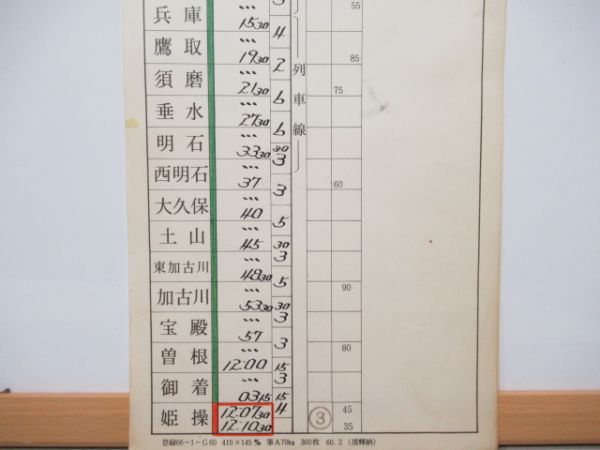 3 55
兵庫 … 15 30
4
鷹取 … 19 30 85
2
須磨 … 21 30 75
6
垂水 … 27 30
6
明石 … 33 30
30
3
西明石 … 37 60
3
大久保 … 40
5
土山 … 45
30
3
東加古川 … 48 30
5
加古川 … 53 30 90
30
3
宝殿 … 57
3
曽根 … 12 00 80
15
3
御着 … 03 15
15
4
姫操 12 07 30 ③ 45
12 10 30 35
列車線
登録66-1-G60 410×145㎜ 筆A70kg 300枚 60.2(清輝納)